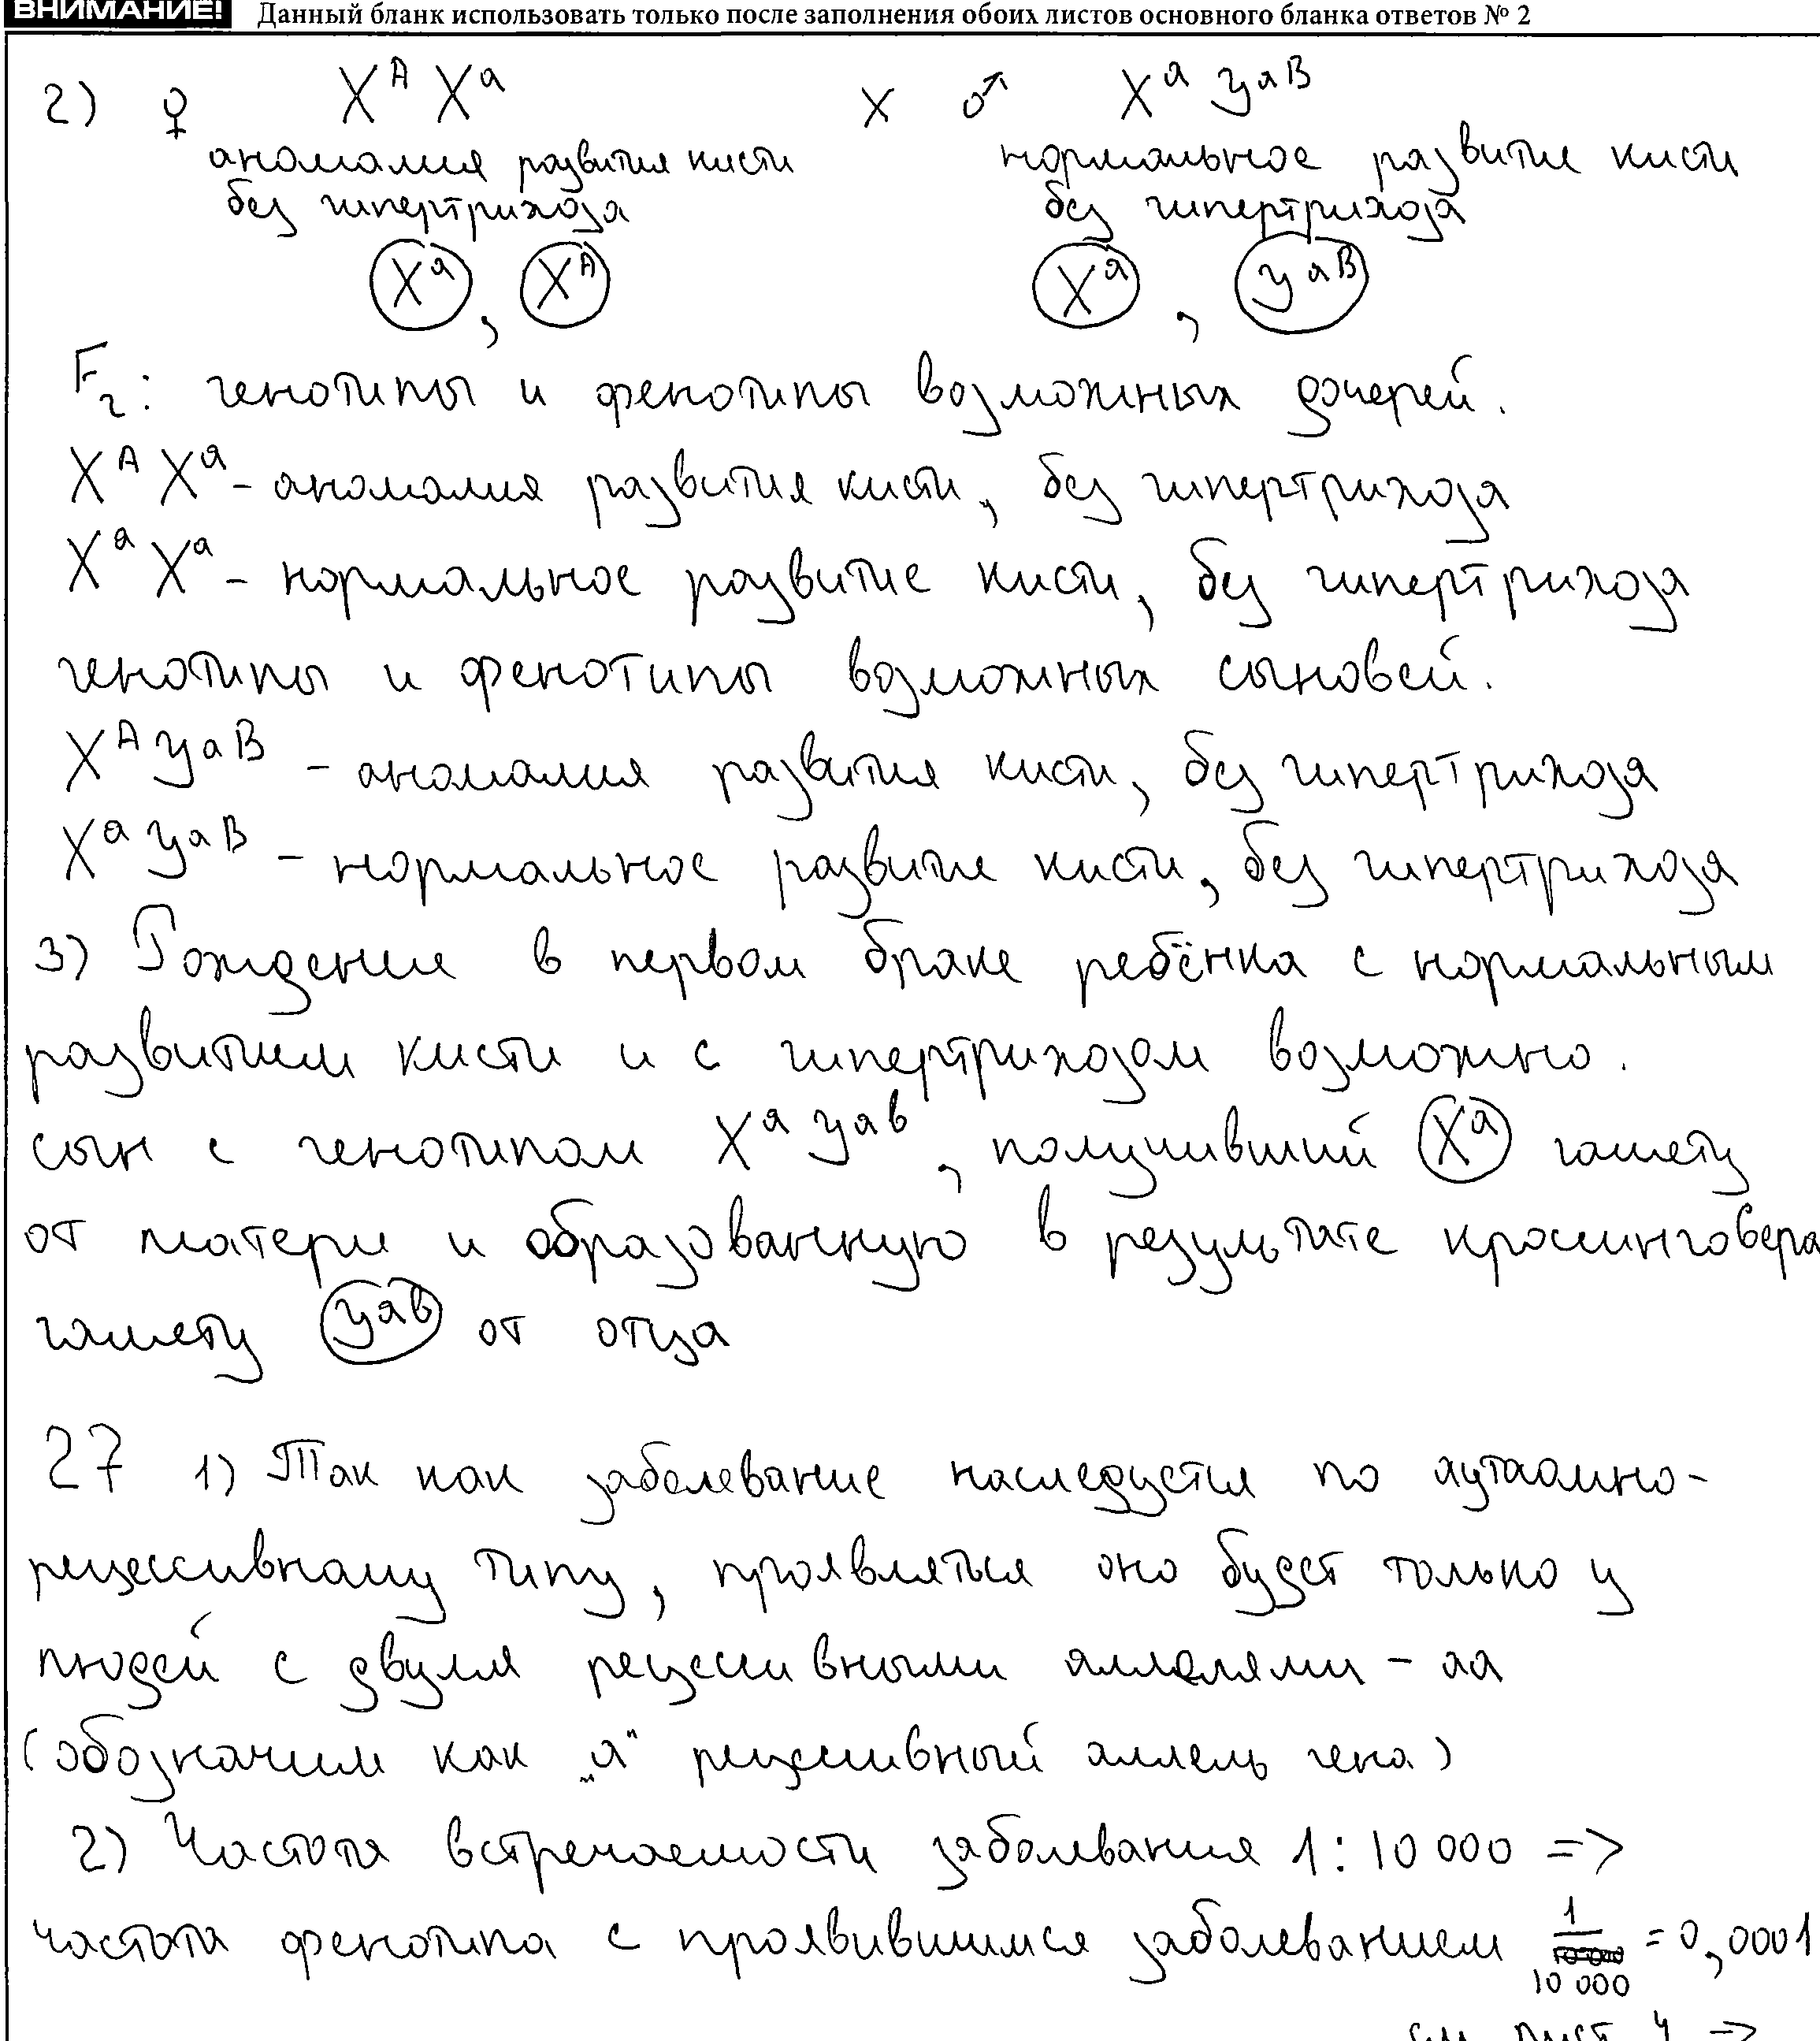 ВНИМАНИЕ! Данный бланк использовать только после заполнения обоих листов основного бланка ответов № 2
2) ♀ X^A X^a × ♂ X^a y^aB
аномалия развития кисти нормальное развитие кисти
без гипертрихоза без гипертрихоза
X^a, X^A X^a, y^aB
F2: генотипы и фенотипы возможных дочерей.
X^A X^a - аномалия развития кисти, без гипертрихоза
X^a X^a - нормальное развитие кисти, без гипертрихоза
генотипы и фенотипы возможных сыновей.
X^A y^aB - аномалия развития кисти, без гипертрихоза
X^a y^aB - нормальное развитие кисти, без гипертрихоза
3) Рождение в первом браке ребёнка с нормальным
развитием кисти и с гипертрихозом возможно.
сын с генотипом X^a y^ab, получивший X^a гамету
от матери и образованную в результате кроссинговера
гамету y^ab от отца
27 1) Так как заболевание наследуется по аутосомно-
рецессивному типу, проявляться оно будет только у
людей с двумя рецессивными аллелями - аа
(обозначим как „а" рецессивный аллель гена)
2) Частота встречаемости заболевания 1:10 000 =>
частота фенотипа с проявившимся заболеванием 1/10 000 = 0,0001
см лист 4 =>